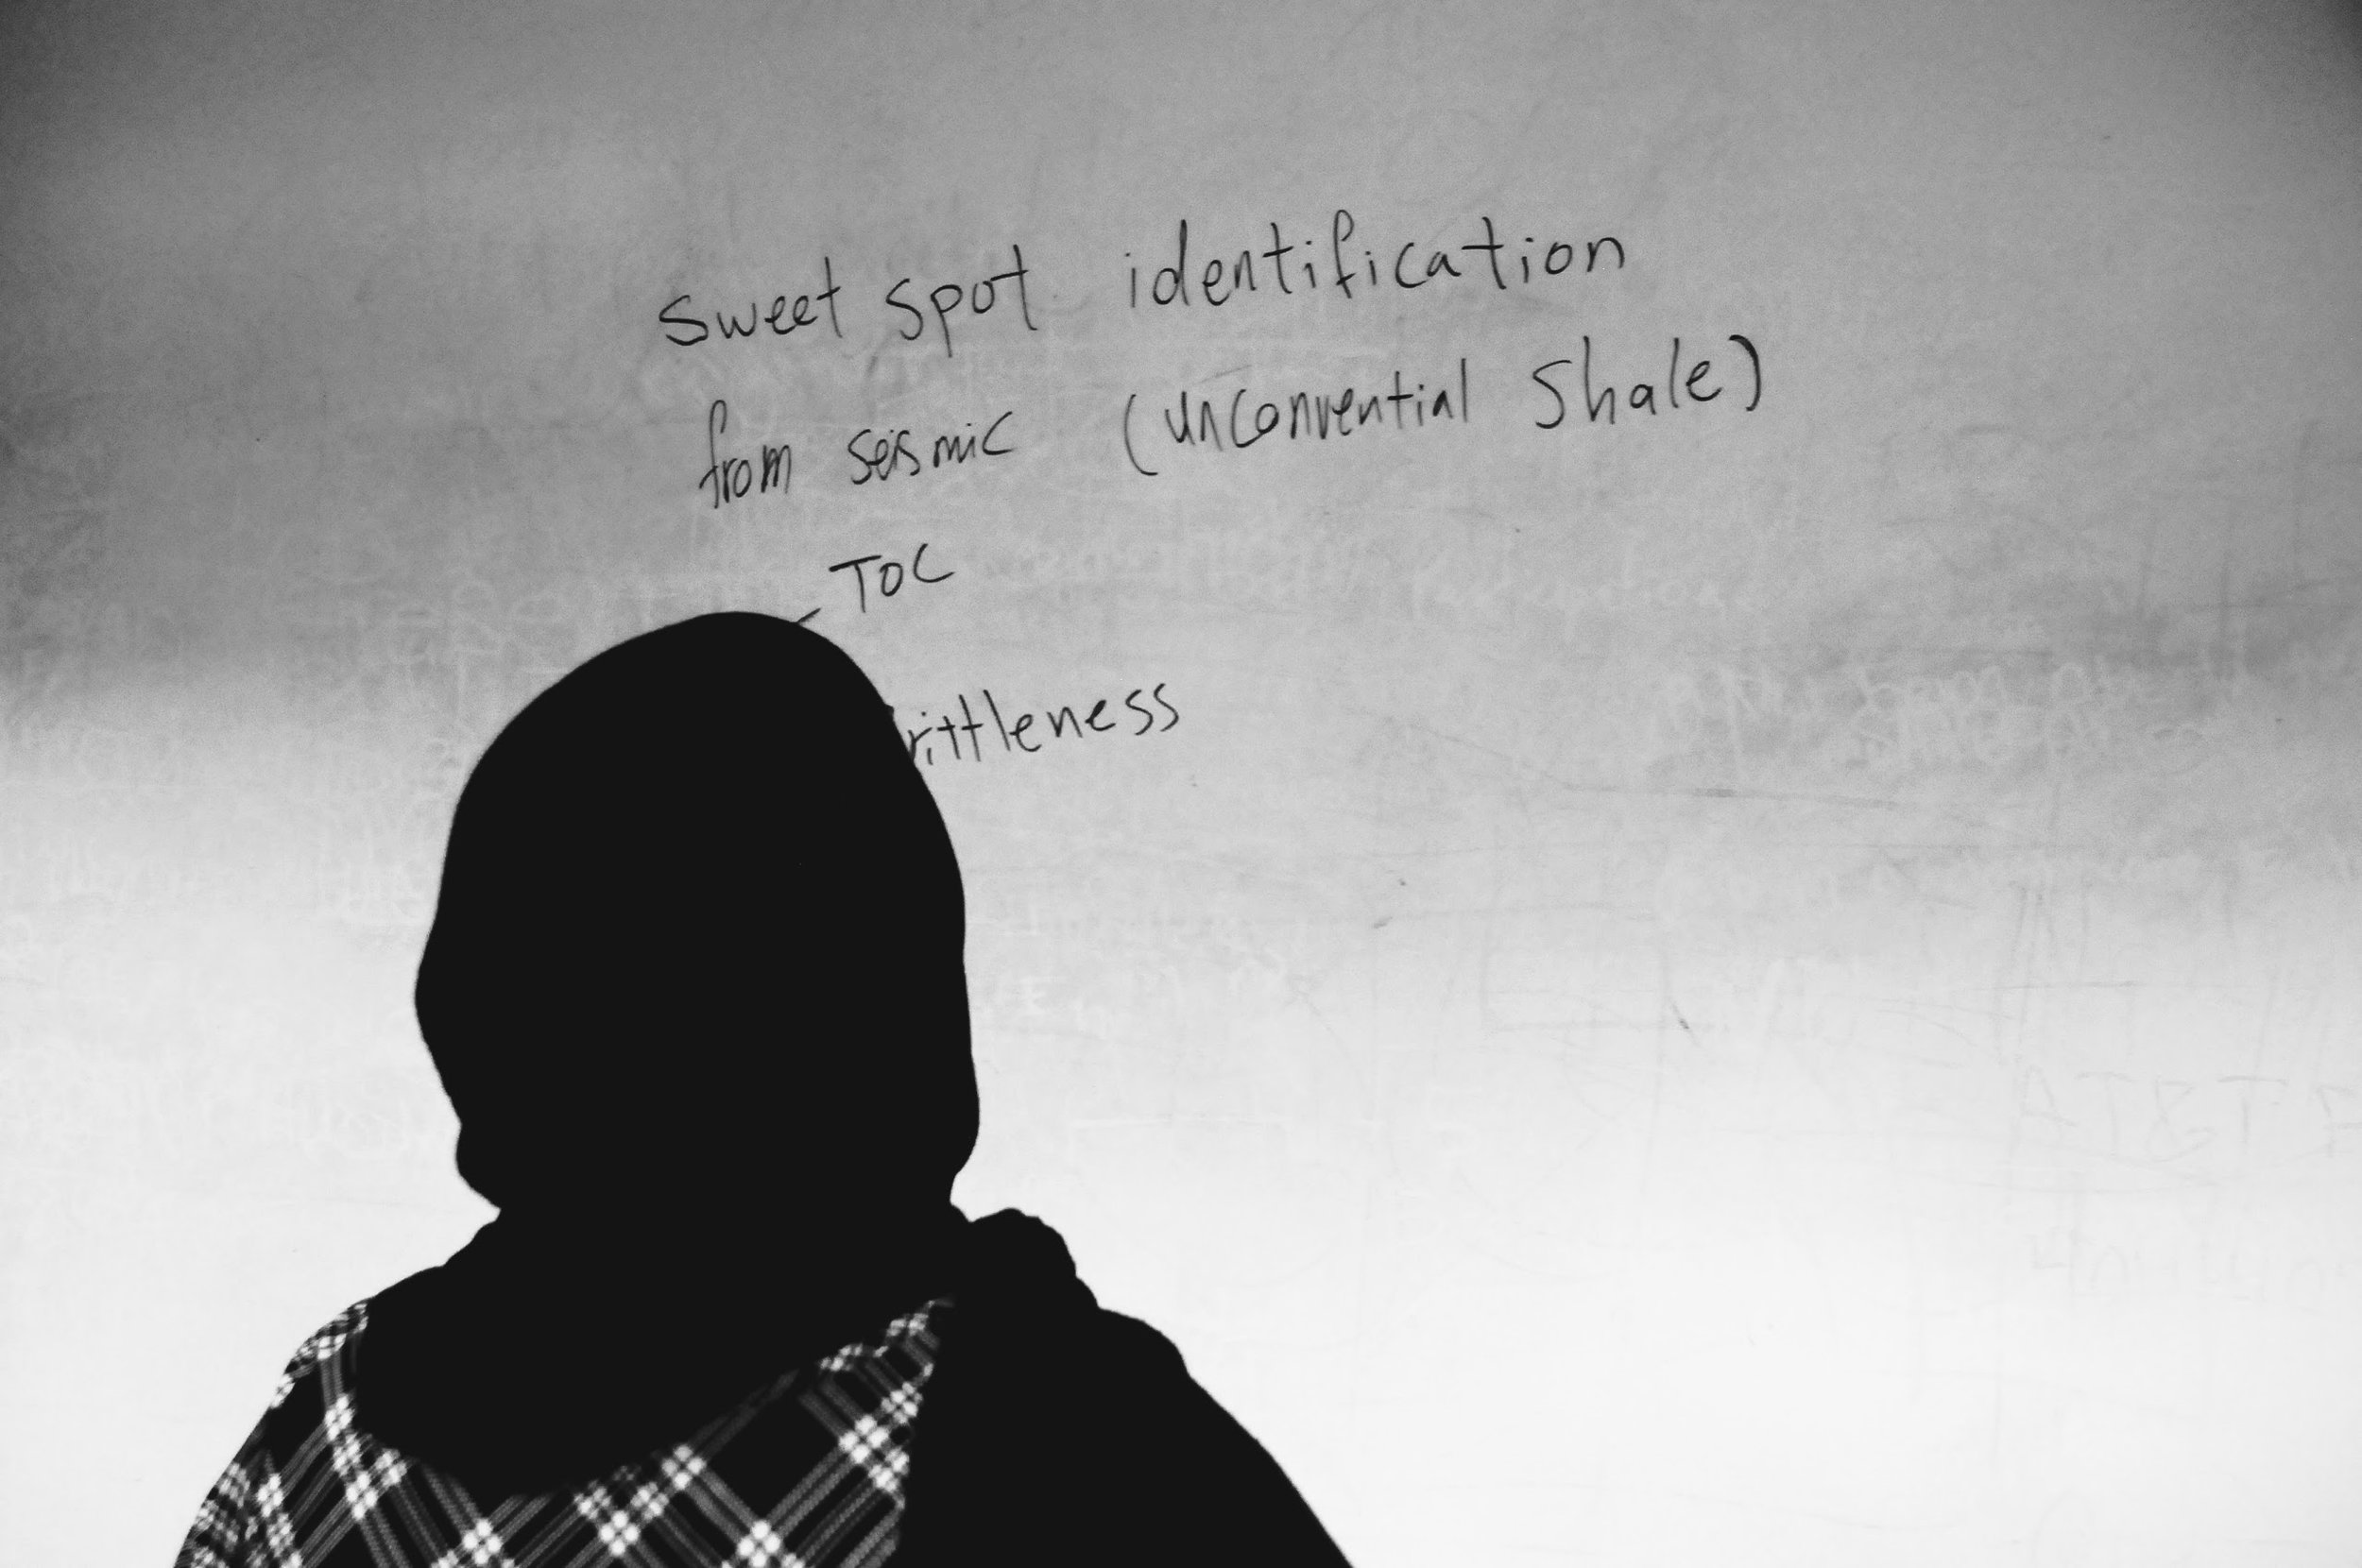 sweet spot identification
from seismic (unconvential shale)
- TOC
rittleness